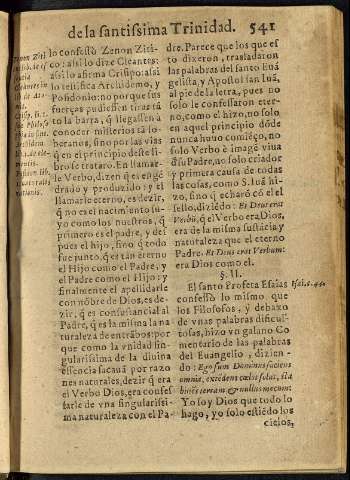 de la santissima Trinidad. 541
lo confessò Zenon Ziti-
co: assi lo dize Cleantes:
assi lo afirma Crisipo: assi
lo testifica Archidemo, y
Posidonio: no porque sus
fuerças pudiessen tirar tã
to la barra, q̃ llegassen à
conocer misterios tã so-
beranos, sino por las vias
q̃ en el principio deste li-
bro se trataro. En llamar-
le Verbo, dizen q̃ es engẽ
drado y produzido: y el
llamarle eterno, es dezir,
q̃ no es el nacimiento su-
yo como los nuestros, q̃
primero es el padre, y des
pues el hijo, sino q̃ todo
fue junto, q̃ es tãn eterno
el Hijo como el Padre, y
el Padre como el Hijo: y
finalmente el apellidarle
con nõbre de Dios, es de-
zir, q̃ es consustancial al
Padre, q̃ es la misma na-
turaleza de entrãbos: por
que como la vnidad sin-
gularissima de la diuina
essencia sacauã por razo
nes naturales, dezir q̃ era
el Verbo Dios, era confes
sarle de vna singularissi-
ma naturaleza con el Pa-
dre. Parece que los que es
to dixeron, trasladaron
las palabras del santo Euã
gelista, y Apostol san Iuã,
al pie de la letra, pues no
solo le confessaron eter-
no, como el hijo, no solo
en aquel principio dõde
nunca huuo comiẽço, no
solo Verbo è imagẽ viua
d̃ su Padre, no solo criador
y primera causa de todas
las cosas, como S. Iuã hi-
zo, sino q̃ echarõ el
sello, diziẽdo: Et Deus erat
Verbũ, q̃ el Verbo era Dios,
era de la misma sustãcia y
naturaleza que el eterno
Padre. Et Deus erat Verbum:
era Dios como el.
§. II.
El santo Profeta Esaias
confessò lo mismo que
los Filosofos, y debaxo
de vnas palabras dificul-
tosas, hizo vn galano Co
mentario de las palabras
del Euangelio, dizien-
do: Ego sum Dominus faciens
omnia, extendens cœlos solus, sta
biliẽs terram & nullus mecum:
Yo soy Dios que todo lo
hago, yo solo estiẽdo los
cielos,
Isai. c. 44.